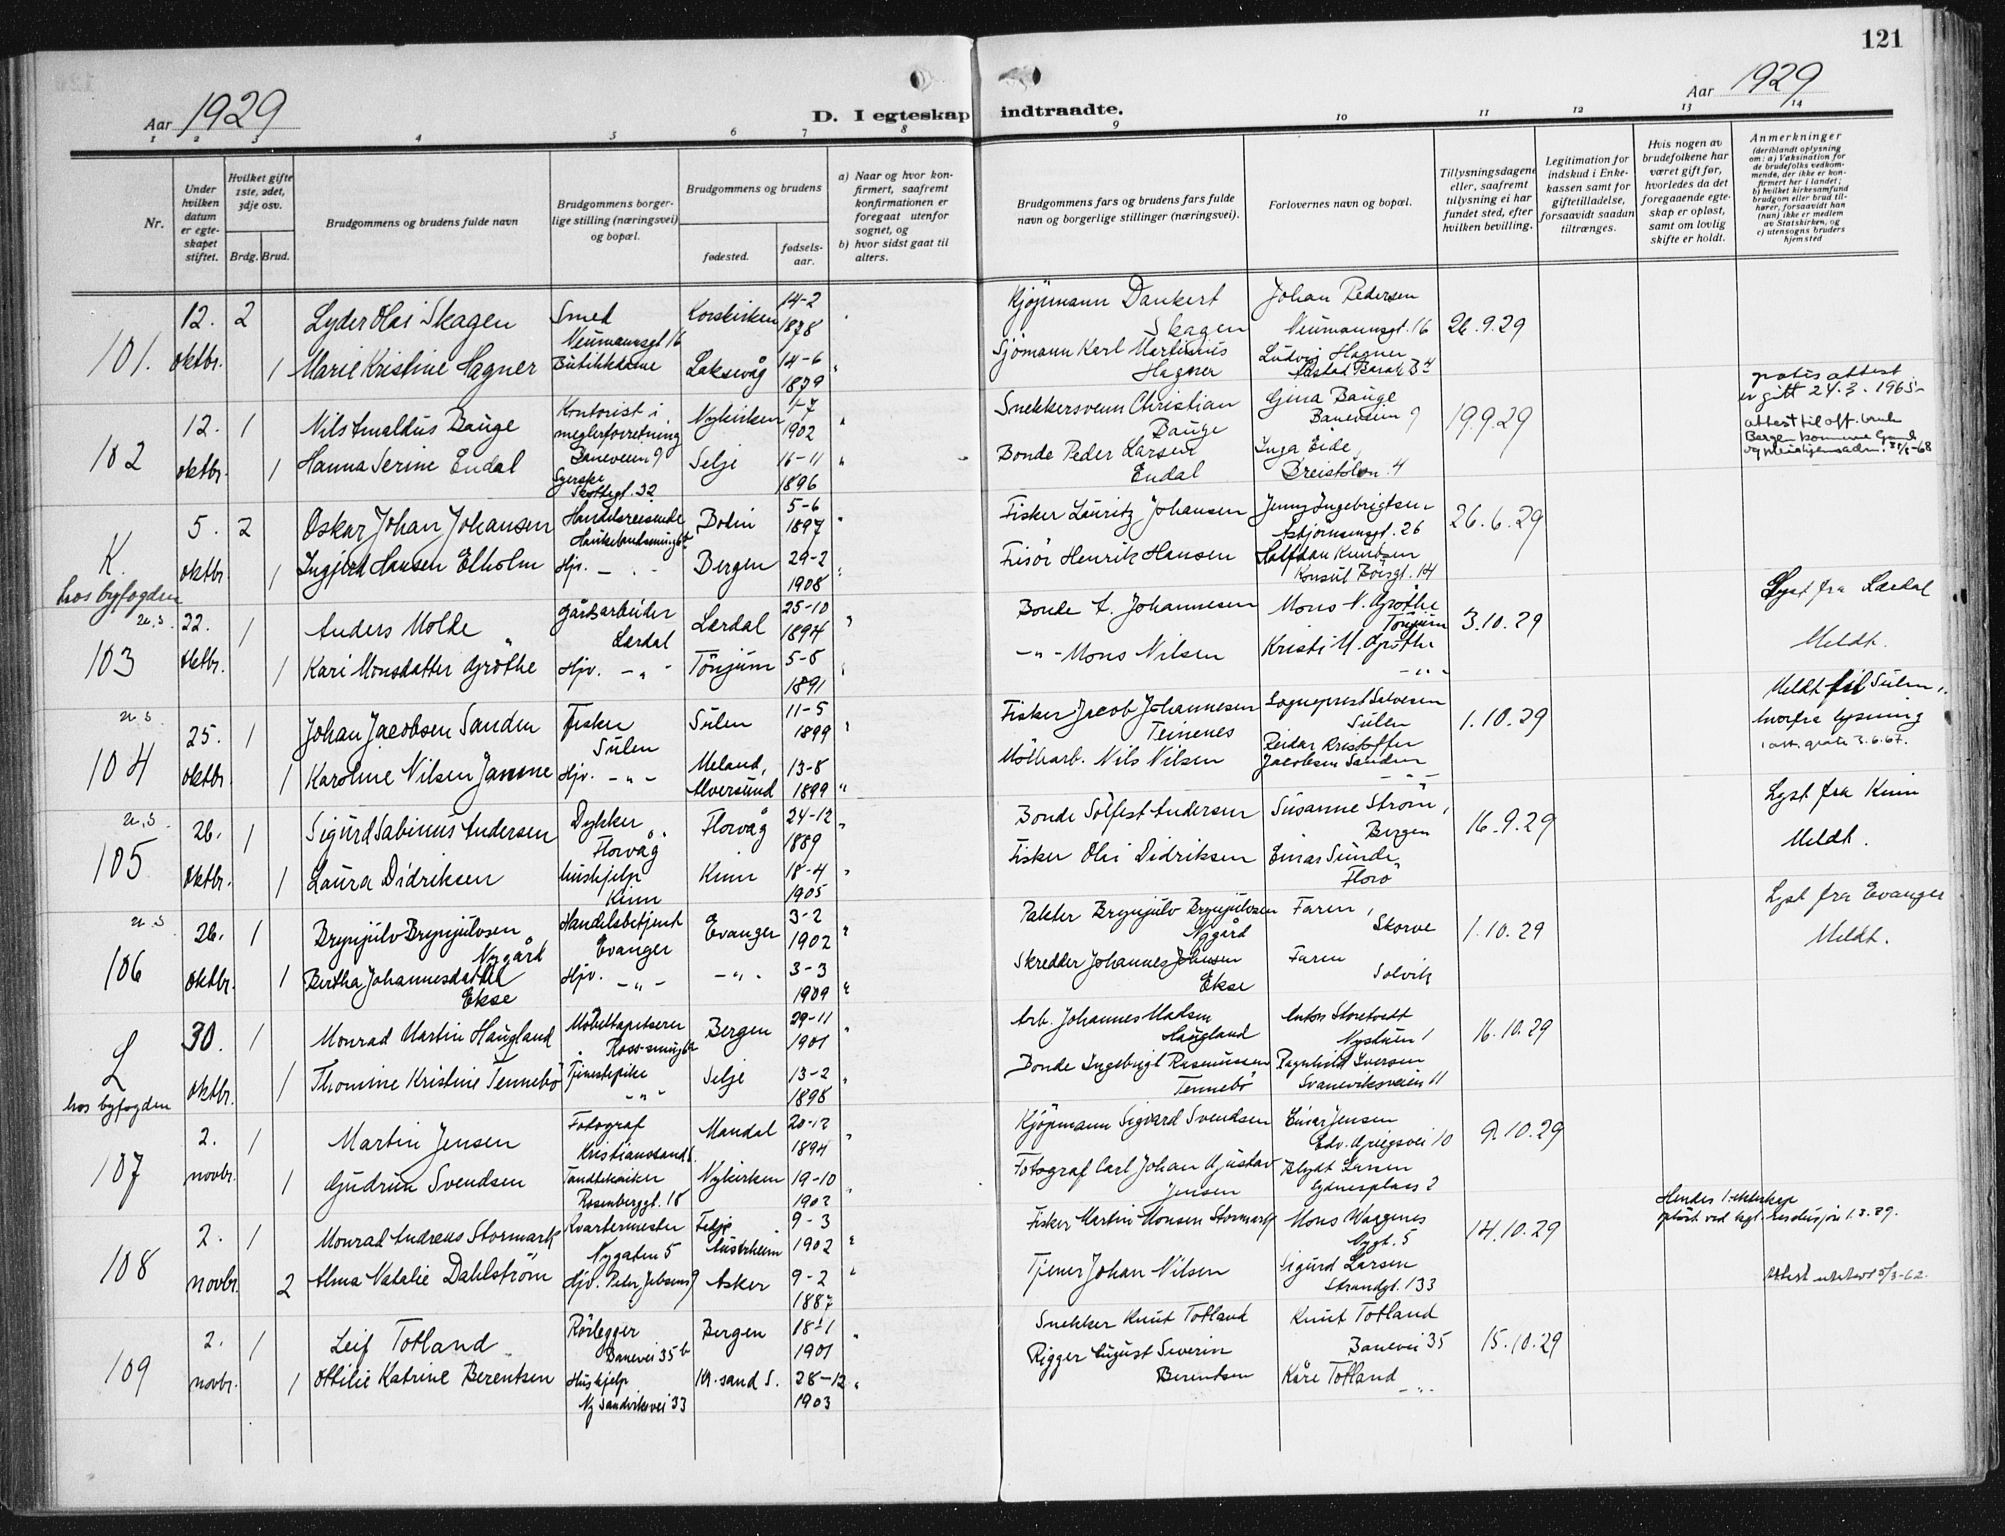 121
Aar 1929
D. I egteskap indtraadte.
Aar 1929
1 2 3 4 5 6 7 8 9 10 11 12 13 14
Nr.
Under hvilken datum er egteskapet stiftet.
Hvilket gifte 1ste, 2det, 3dje osv.
Brdg. Brud.
Brudgommens og brudens fulde navn
Brudgommens borgerlige stilling (næringsvei) og bopæl.
Brudgommens og brudens
fødested.
fødselsaar.
a) Naar og hvor konfirmert, saafremt konfirmationen er foregaat utenfor sognet, og
b) hvor sidst gaat til alters.
Brudgommens fars og brudens fars fulde navn og borgerlige stillinger (næringsvei).
Forlovernes navn og bopæl.
Tillysningsdagene eller, saafremt tillysning ei har fundet sted, efter hvilken bevilling.
Legitimation for indskud i Enkekassen samt for giftetilladelse, forsaavidt saadan tiltrænges.
Hvis nogen av brudefolkene har været gift før, hvorledes da det foregaaende egteskap er opløst, samt om lovlig skifte er holdt.
Anmerkninger
(deriblandt oplysning om: a) Vaksination for de brudefolks vedkommende, der ikke er konfirmert her i landet; b) hvilket kirkesamfund brudgom eller brud tilhører, forsaavidt han (hun) ikke er medlem av Statskirken, og c) utensogns bruders hjemsted
101. 12. oktbr. 2 Lyder Olai Skagen Smed Neumannsgt 16 Korskirken 14-2 1878 Kjøpmann Dankert Skagen Johan Pedersen Neumannsgt. 16 26.9.29
1 Marie Kristine Hagner Butikkdame Laksevåg 14-6 1879 Sjømann Karl Martinius Hagner Ludvig Hagner
102 12. oktbr. 1 Nils Arnoldus Bauge Kontorist i meglerforretning Baneveien 9 Nykirken 1-7 1902 Snekkersvenn Christian Bauge Gina Bauge Baneveien 9 19.9.29
gratis attest er gitt 24.3.1965
attest til off. bruk
1 Hanna Serine Endal Syerske Skottegt. 32 Selje 16-11 1896 Bonde Peder Larsen Endal Inga Eide, Breistølen 4
K. hos byfogden 5. oktbr. 2 Oskar Johan Johansen Handelsreisende Bodin 5-6 1897 Fisker Lauritz Johansen Jenny Ingebrigtsen Asbjørnsensgt. 26 26.6.29
1 Ingjerd Hansen Elholm Hjv. — " — Bergen 29-2 1908 Frisør Henrik Hansen Halfdan Knudsen Konsul Børsgt. 14
103 u.s. 22. oktbr. 1 Anders Molde Gårdsarbeider Lærdal Lærdal 25-10 1894 Bonde A. Johannesen Mons N. Grøthe Tønjum 3.10.29 Lyst fra Lærdal
1 Kari Monsdatter Grøthe Hjv. — " — Tønjum 5-8 1891 — " — Mons Nilsen Kristi M. Grøthe — " — Meldt.
104 u.s. 25. oktbr. 1 Johan Jacobsen Sanden Fisker Sulen Sulen 11-5 1899 Fisker Jacob Johannesen Teinenes Sogneprest Salvesen Sulen 1.10.29 Meldt til Sulen, hvorfra lysning
1 att. gratis 3.6.67.
1 Karoline Nilsen Janne Hjv. — " — Meland, Alversund 13-8 1899 Møllearb. Nils Nilsen Reidar Kristoffer Jacobsen Sanden — " —
105 u.s. 26. oktbr. 1 Sigurd Sabinus Andersen Dykker Florvåg Florvåg 24-12 1889 Bonde Solfest Andersen Susanne Strøm, Bergen 16.9.29 Lyst fra Kinn
1 Laura Didriksen hushjelp Kinn Kinn 18-4 1905 Fisker Olai Didriksen Einar Sunde, Florø Meldt.
106 u.s. 26. oktbr. 1 Brynjulv Brynjulvsen Nygård Handelsbetjent Evanger Evanger 3-2 1902 Pakter Brynjulv Brynjulvsen Nygård Faren, Skorve 1.10.29 Lyst fra Evanger
1 Bertha Johannesdatter Ekse Hjv. — " — — " — 3-3 1909 Skredder Johannes Johnsen Ekse Faren Solvik Meldt.
L hos byfogden 30. oktbr. 1 Monrad Martin Haugland Møbeltapetserer Bergen 29-11 1901 Arb. Johannes Madsen Haugland Anton Storetvedt Nystuen 1 16.10.29
1 Thomine Kristine Tennebø Tjenestepike — " — Selje 13-2 1898 Bonde Ingebrigt Rasmussen Tennebø Ragnhild Iversen Svaneviksveien 11
107 2. novbr. 1 Martin Jensen Fotograf Kristianssand S. Mandal 20-12 1894 Kjøpmann Sigvard Svendsen Einar Jensen Edv. Griegsvei 10 9.10.29
1 Gudrun Svendsen Tandtekniker Rosenberggt. 18 Nykirken 19-10 1902 Fotograf Carl Johan Gustav Jensen Blydt Larsen Sydnesplass 2
108 2. novbr. 1 Monrad Andreas Stormark Kvartermester Nygaten 5 Fedje Austrheim 9-3 1902 Fisker Martin Monsen Stormark Mons Waagenes Nygt. 5 14.10.29 Hendes 1. ekteskap opløst ved kgl. resolusjon 1.2.29.
2 Alma Natalie Dahlstrøm Hjv. Peter Jebsens 9 Asker 9-2 1887 Tjener Johan Nilsen Sigurd Larsen Strandgt. 133 Attest utstedt 5/3-62.
109 2. novbr. 1 Leif Totland Rørlegger Banevei 35 b Bergen 18-1 1901 Snekker Knut Totland Knut Totland Banevei 35 15.10.29
1 Ottilie Katrine Berentsen Hushjelp Ny Sandviksvei 33 Kr.sand S. 28-12 1903 Rigger August Severin Berentsen Kåre Totland — " —